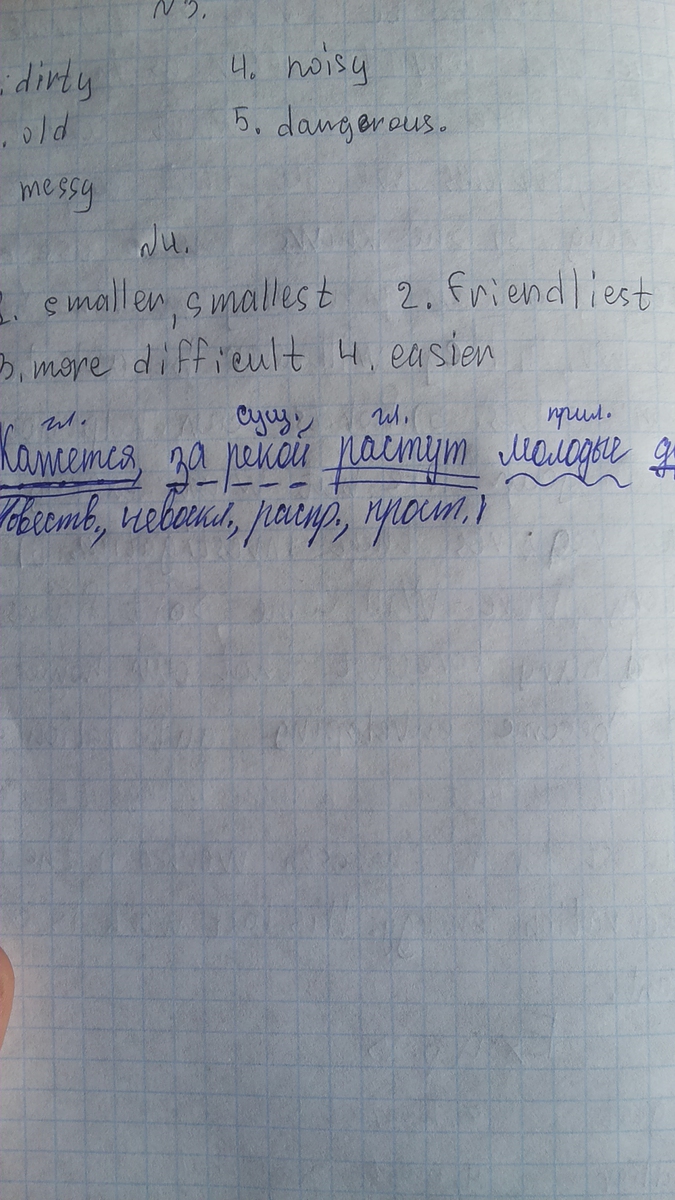 N3.
dirty 4. noisy
. old 5. dangerous.
messy
N4.
1. smaller, smallest 2. friendliest
3. more difficult 4. easier
гл. сущ., гл. прил.
Кажется, за рекой растут молодые
Повеств., невоскл., распр., прост.,